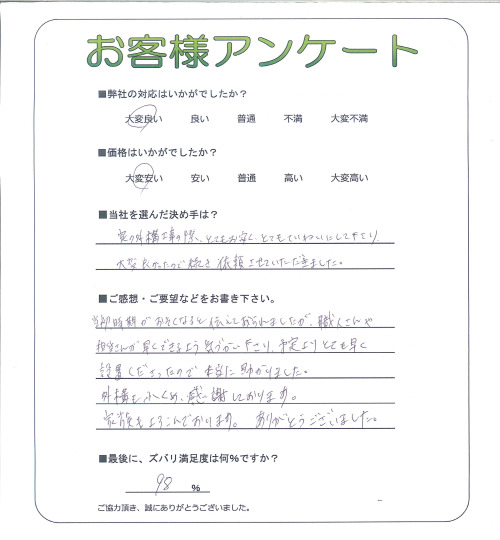 お客様アンケート
■弊社の対応はいかがでしたか？
大変良い 良い 普通 不満 大変不満
■価格はいかがでしたか？
大変安い 安い 普通 高い 大変高い
■当社を選んだ決め手は？
家の外構工事の際、とてもお安く、とてもていねいにして下さり
大変良かったので続き依頼させていただきました。
■ご感想・ご要望などをお書き下さい。
時期がおそくなると伝えておられましたが、職人さんや
担当さんが早くできるよう気づかい下さり、予定よりとても早く
設置くださったので本当に助かりました。
外構もふくめ、感謝しております。
家族もよろこんでおります。ありがとうございました。
■最後に、ズバリ満足度は何％ですか？
98 ％
ご協力頂き、誠にありがとうございました。